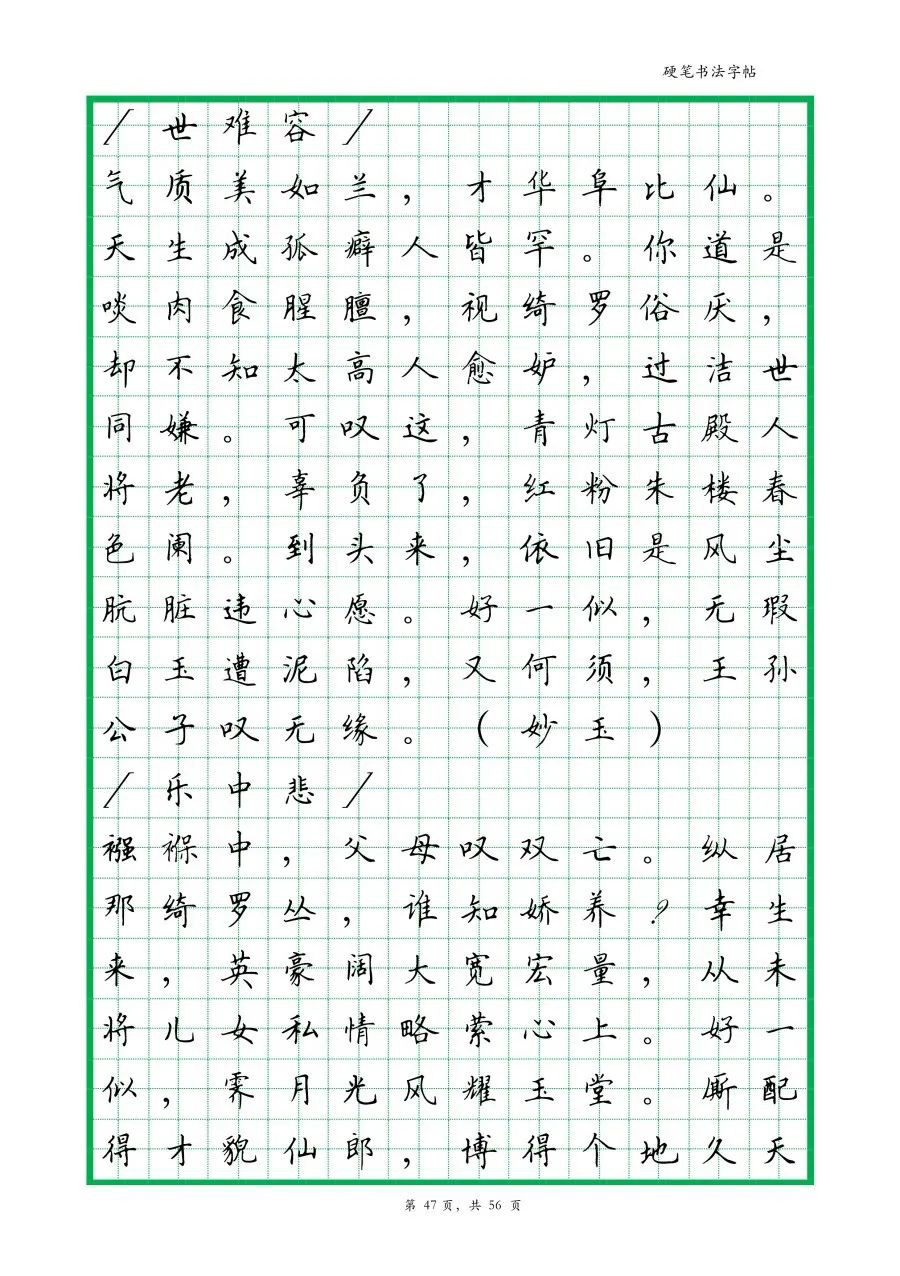 硬笔书法字帖
/世难容/
气质美如兰，才华阜比仙。
天生成孤癖人皆罕。你道是
啖肉食腥膻，视绮罗俗厌，
却不知太高人愈妒，过洁世
同嫌。可叹这，青灯古殿人
将老，辜负了，红粉朱楼春
色阑。到头来，依旧是风尘
肮脏违心愿。好一似，无瑕
白玉遭泥陷，又何须，王孙
公子叹无缘。（妙玉）
/乐中悲/
襁褓中，父母叹双亡。纵居
那绮罗丛，谁知娇养？幸生
来，英豪阔大宽宏量，从未
将儿女私情略萦心上。好一
似，霁月光风耀玉堂。厮配
得才貌仙郎，博得个地久天
第 47 页，共 56 页